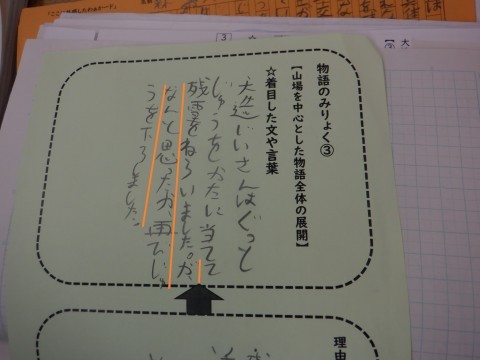 物語のみりょく③
【山場を中心とした物語全体の展開】
☆着目した文や言葉
大造じいさんはぐっと
じゅうをかたに当てて
残雪をねらいました。が、
なんと思ったか、再びじゅ
うを下ろしました。
理由